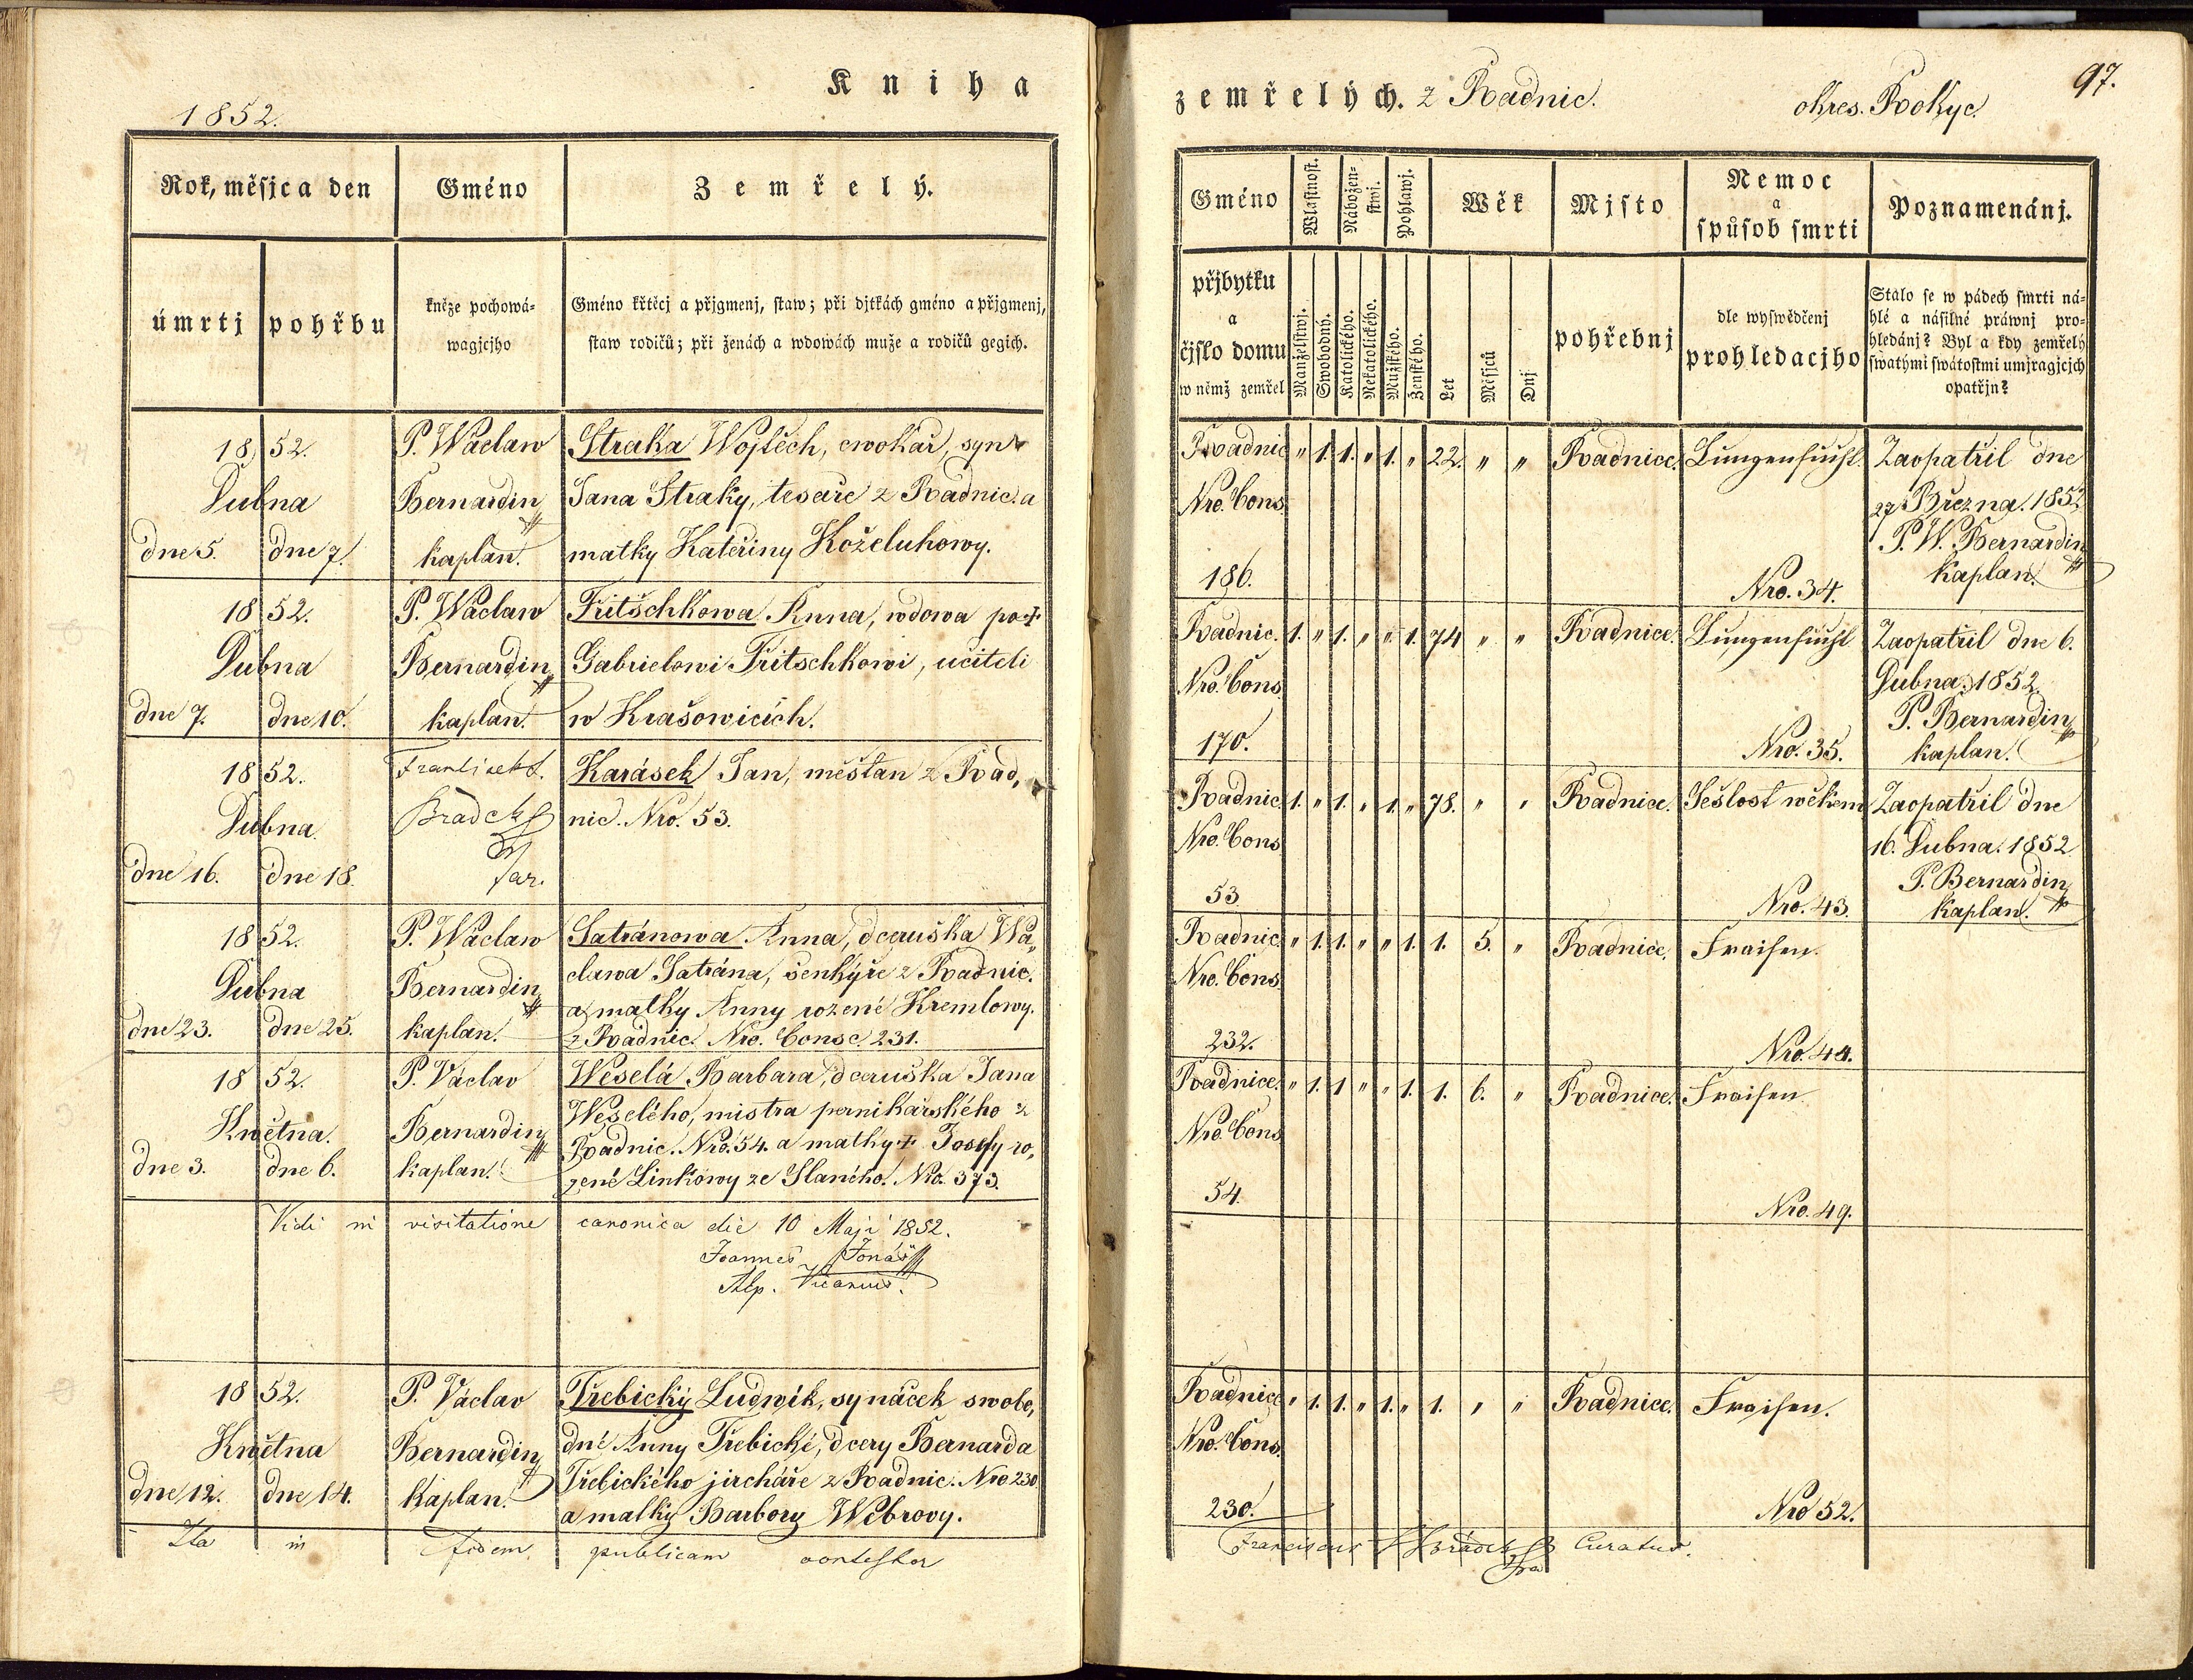 Kniha
1852.
Rok, měsjc a den
Gméno
Zemřelý.
úmrtj
pohřbu
kněze pochowá=
wagjcjho
Gméno křtěcj a přjgmenj, staw; při djtkách gméno a přjgmenj,
staw rodičů; při ženách a wdowách muže a rodičů gegich.
1852.
Dubna
dne 5.
dne 7.
P. Wáclaw
Bernardin
kaplan.
Straka Wojtěch, cwokař, syn
Jana Straky, tesaře z Radnic. a
matky Kateřiny Koželuhowy.
1852.
Dubna
dne 7.
dne 10.
P. Wáclaw
Bernardin
kaplan.
Fritschkowa Anna, wdowa po +
Gabrielowi Fritschkowi, učiteli
w Krašowicích.
1852.
Dubna
dne 16.
dne 18.
František
far.
Karásek Jan, měšťan z Rad,
nic. Nro. 53.
1852.
Dubna
dne 23.
dne 25.
P. Wáclaw
Bernardin
kaplan.
Satránowa Anna, dceruška Wá„
clawa Satrána, šenkýře z Radnic.
a matky Anny rozené Kremlowy.
z Radnic. Nro. Consc. 231.
1852.
Května.
dne 3.
dne 6.
P. Václav
Bernardin
kaplan.
Weselá Barbara, dceruška Jana
Weselého, mistra pernikářského z
Radnic. Nro. 54. a matky + Josefy ro,
zené Linkowy ze Slaného. Nro. 373.
Vidi in visitatione canonica die 10 Maji 1852.
Joannes Jonáš
Vicarius.
1852.
Května
dne 12.
dne 14.
P. Václav
Bernardin
kaplan.
Třebický Ludwik, synáček swobo,
dné Anny Třebické, dcery Bernarda
Třebického jircháře z Radnic. Nro 230
a matky Barbory Wébrovy.
Ita in fidem publicam contestor
zemřelých. z Radnic.
okres. Rokyc.
97.
Gméno
Wlastnost.
Nábožen-
stwj.
Pohlawj.
Wěk
Mjsto
Nemoc
a
spůsob smrti
Poznamenánj.
přjbytku
a
čjslo domu
w němž zemřel
Manželstwj.
Swobodný.
Katolického.
Nekatolického.
Mužského.
Ženského.
Let
Měsjců
Dnj
pohřebnj
dle wyswědčenj
prohledacjho
Stalo se w pádech smrti ná-
hlé a násilné práwnj pro-
hledánj? Byl a kdy zemřelý
swatými swátostmi umjragjcjch
opatřjn?
Radnic " 1. 1. " 1. " 22. " " Radnice. Lungensucht. Zaopatřil dne
Nro. Cons. 27 Března. 1852
P. W. Bernardin
186. Nro. 34. kaplan.
Radnic. 1. " 1. " " 1. 74 " " Radnice. Lungensucht Zaopatřil dne 6.
Nro. Cons. Dubna. 1852.
P. Bernardin
170. Nro. 35. kaplan.
Radnic 1. " 1. " 1. " 78. " " Radnice. Sešlost wěkem Zaopatřil dne
Nro. Cons. 16. Dubna. 1852
P. Bernardin
53. Nro. 43. kaplan.
Radnic. " 1. 1. " " 1. 1. 5. " Radnice. Fraisen.
Nro. Cons.
232. Nro. 44.
Radnice. " 1. 1 " " 1. 1. 6. " Radnice. Fraisen
Nro. Cons
54. Nro. 49.
Radnice " 1. 1. " 1. " 1. " " Radnice. Fraisen.
Nro. Cons.
230. Nro 52.
Franciscus Curatus.